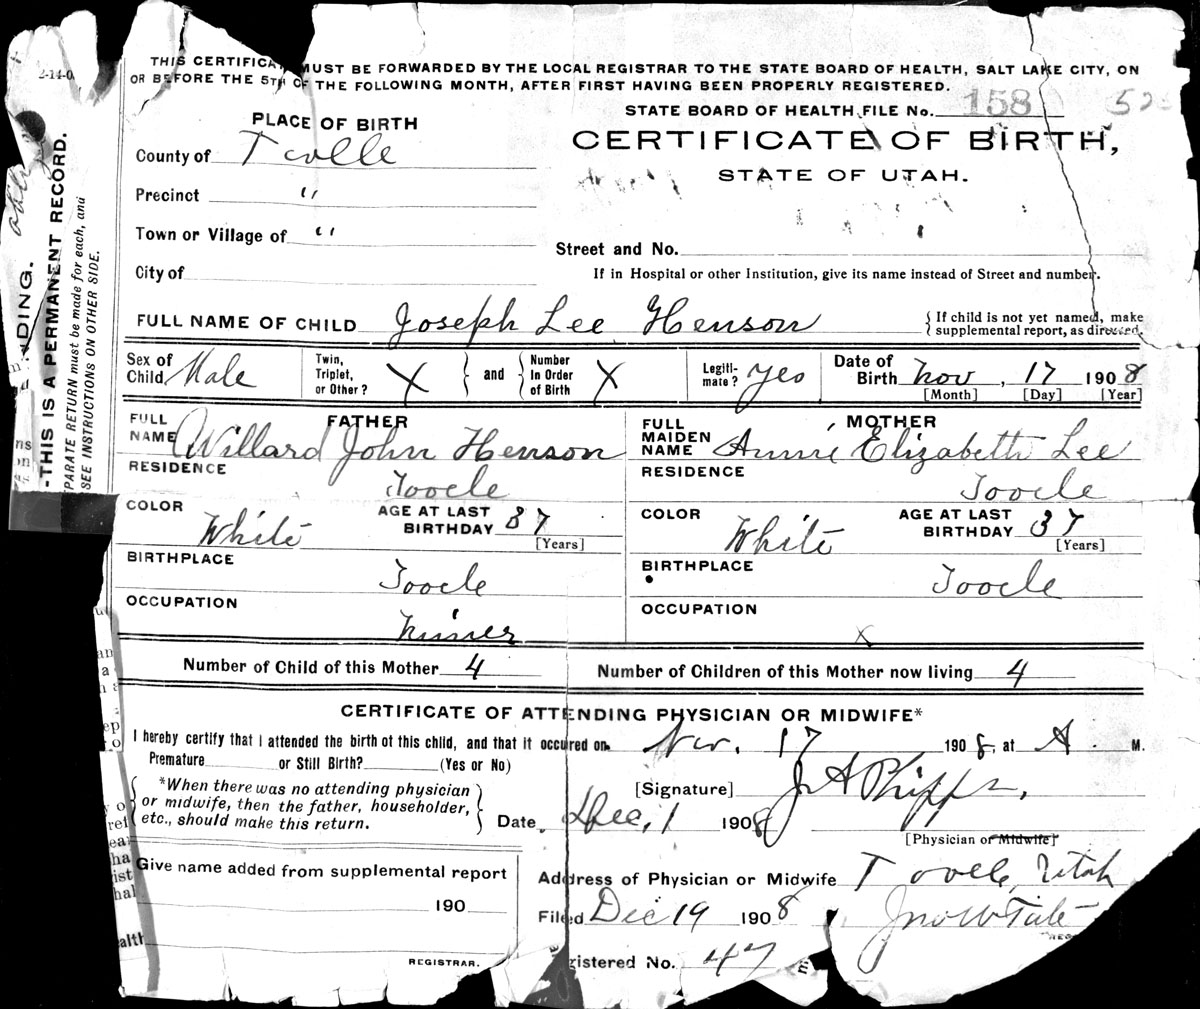 2-14-0
THIS CERTIFICA MUST BE FORWARDED BY THE LOCAL REGISTRAR TO THE STATE BOARD OF HEALTH, SALT LAKE CITY, ON
OR BEFORE THE 5TH OF THE FOLLOWING MONTH, AFTER FIRST HAVING BEEN PROPERLY REGISTERED.
STATE BOARD OF HEALTH FILE No. 158 52
CERTIFICATE OF BIRTH,
STATE OF UTAH.
PLACE OF BIRTH
County of Tooele
Precinct "
Town or Village of "
City of
Street and No.
If in Hospital or other Institution, give its name instead of Street and number.
NDING.
-THIS IS A PERMANENT RECORD.
PARATE RETURN must be made for each, and
SEE INSTRUCTIONS ON OTHER SIDE.
FULL NAME OF CHILD Joseph Lee Henson
{ If child is not yet named, make
{ supplemental report, as directed.
Sex of Child Male
Twin, Triplet, or Other? X } and { Number In Order of Birth X
Legiti-mate? yes
Date of Birth Nov, 17 1908
[Month] [Day] [Year]
FATHER
FULL NAME Willard John Henson
RESIDENCE Tooele
COLOR White
AGE AT LAST BIRTHDAY 37 [Years]
BIRTHPLACE Tooele
OCCUPATION Miner
MOTHER
FULL MAIDEN NAME Annie Elizabeth Lee
RESIDENCE Tooele
COLOR White
AGE AT LAST BIRTHDAY 37 [Years]
BIRTHPLACE Tooele
OCCUPATION X
Number of Child of this Mother 4
Number of Children of this Mother now living 4
CERTIFICATE OF ATTENDING PHYSICIAN OR MIDWIFE*
I hereby certify that I attended the birth of this child, and that it occured on Nov. 17 1908, at A. M.
Premature or Still Birth? (Yes or No)
{ *When there was no attending physician
or midwife, then the father, householder,
etc., should make this return. }
[Signature] J A Phipps,
Date Dec, 1 1908
[Physician or Midwife]
Give name added from supplemental report
190
REGISTRAR.
Address of Physician or Midwife Tooele, Utah
Filed Dec 19 1908 Jno W Tate
REG
gistered No. 47